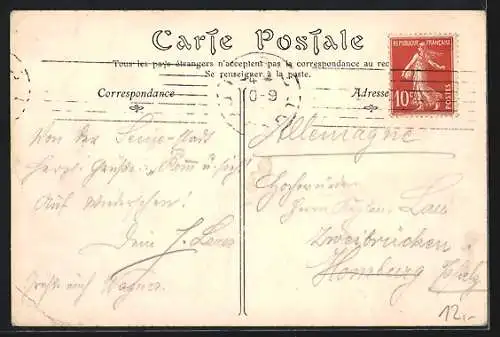 Carte Postale
Tous les pays étrangers n'acceptent pas la correspondance au rec
Se renseigner à la poste.
Correspondance
Adresse
REPUBLIQUE FRANÇAISE
10
POSTES
4
0-9
Allemagne
Von der Seine-Stadt
herzl. Grüße. „Komm u. sieh!"
Auf Wiedersehen!
Dein J.
Grüße auch Wagner.
Hochwürden
Herrn Kaplan
Zweibrücken
Homburg Pfalz
12,-